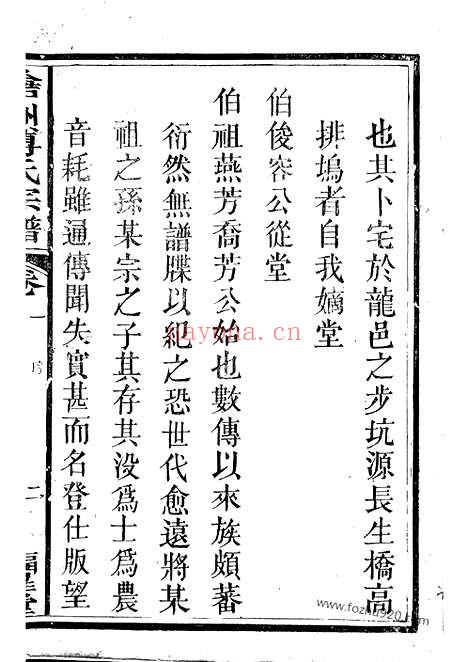 也其卜宅於龍邑之步坑源長生橋高
排塢者自我嫡堂
伯俊容公從堂
伯祖燕芳喬芳公始也數傳以來族頗蕃
衍然無譜牒以紀之恐世代愈遠將某
祖之孫某宗之子其存其没爲士爲農
音耗雖通傳聞失實甚而名登仕版望
傅氏宗譜 卷一 序 二
gayuna.com.cn
www.fozhu920.com